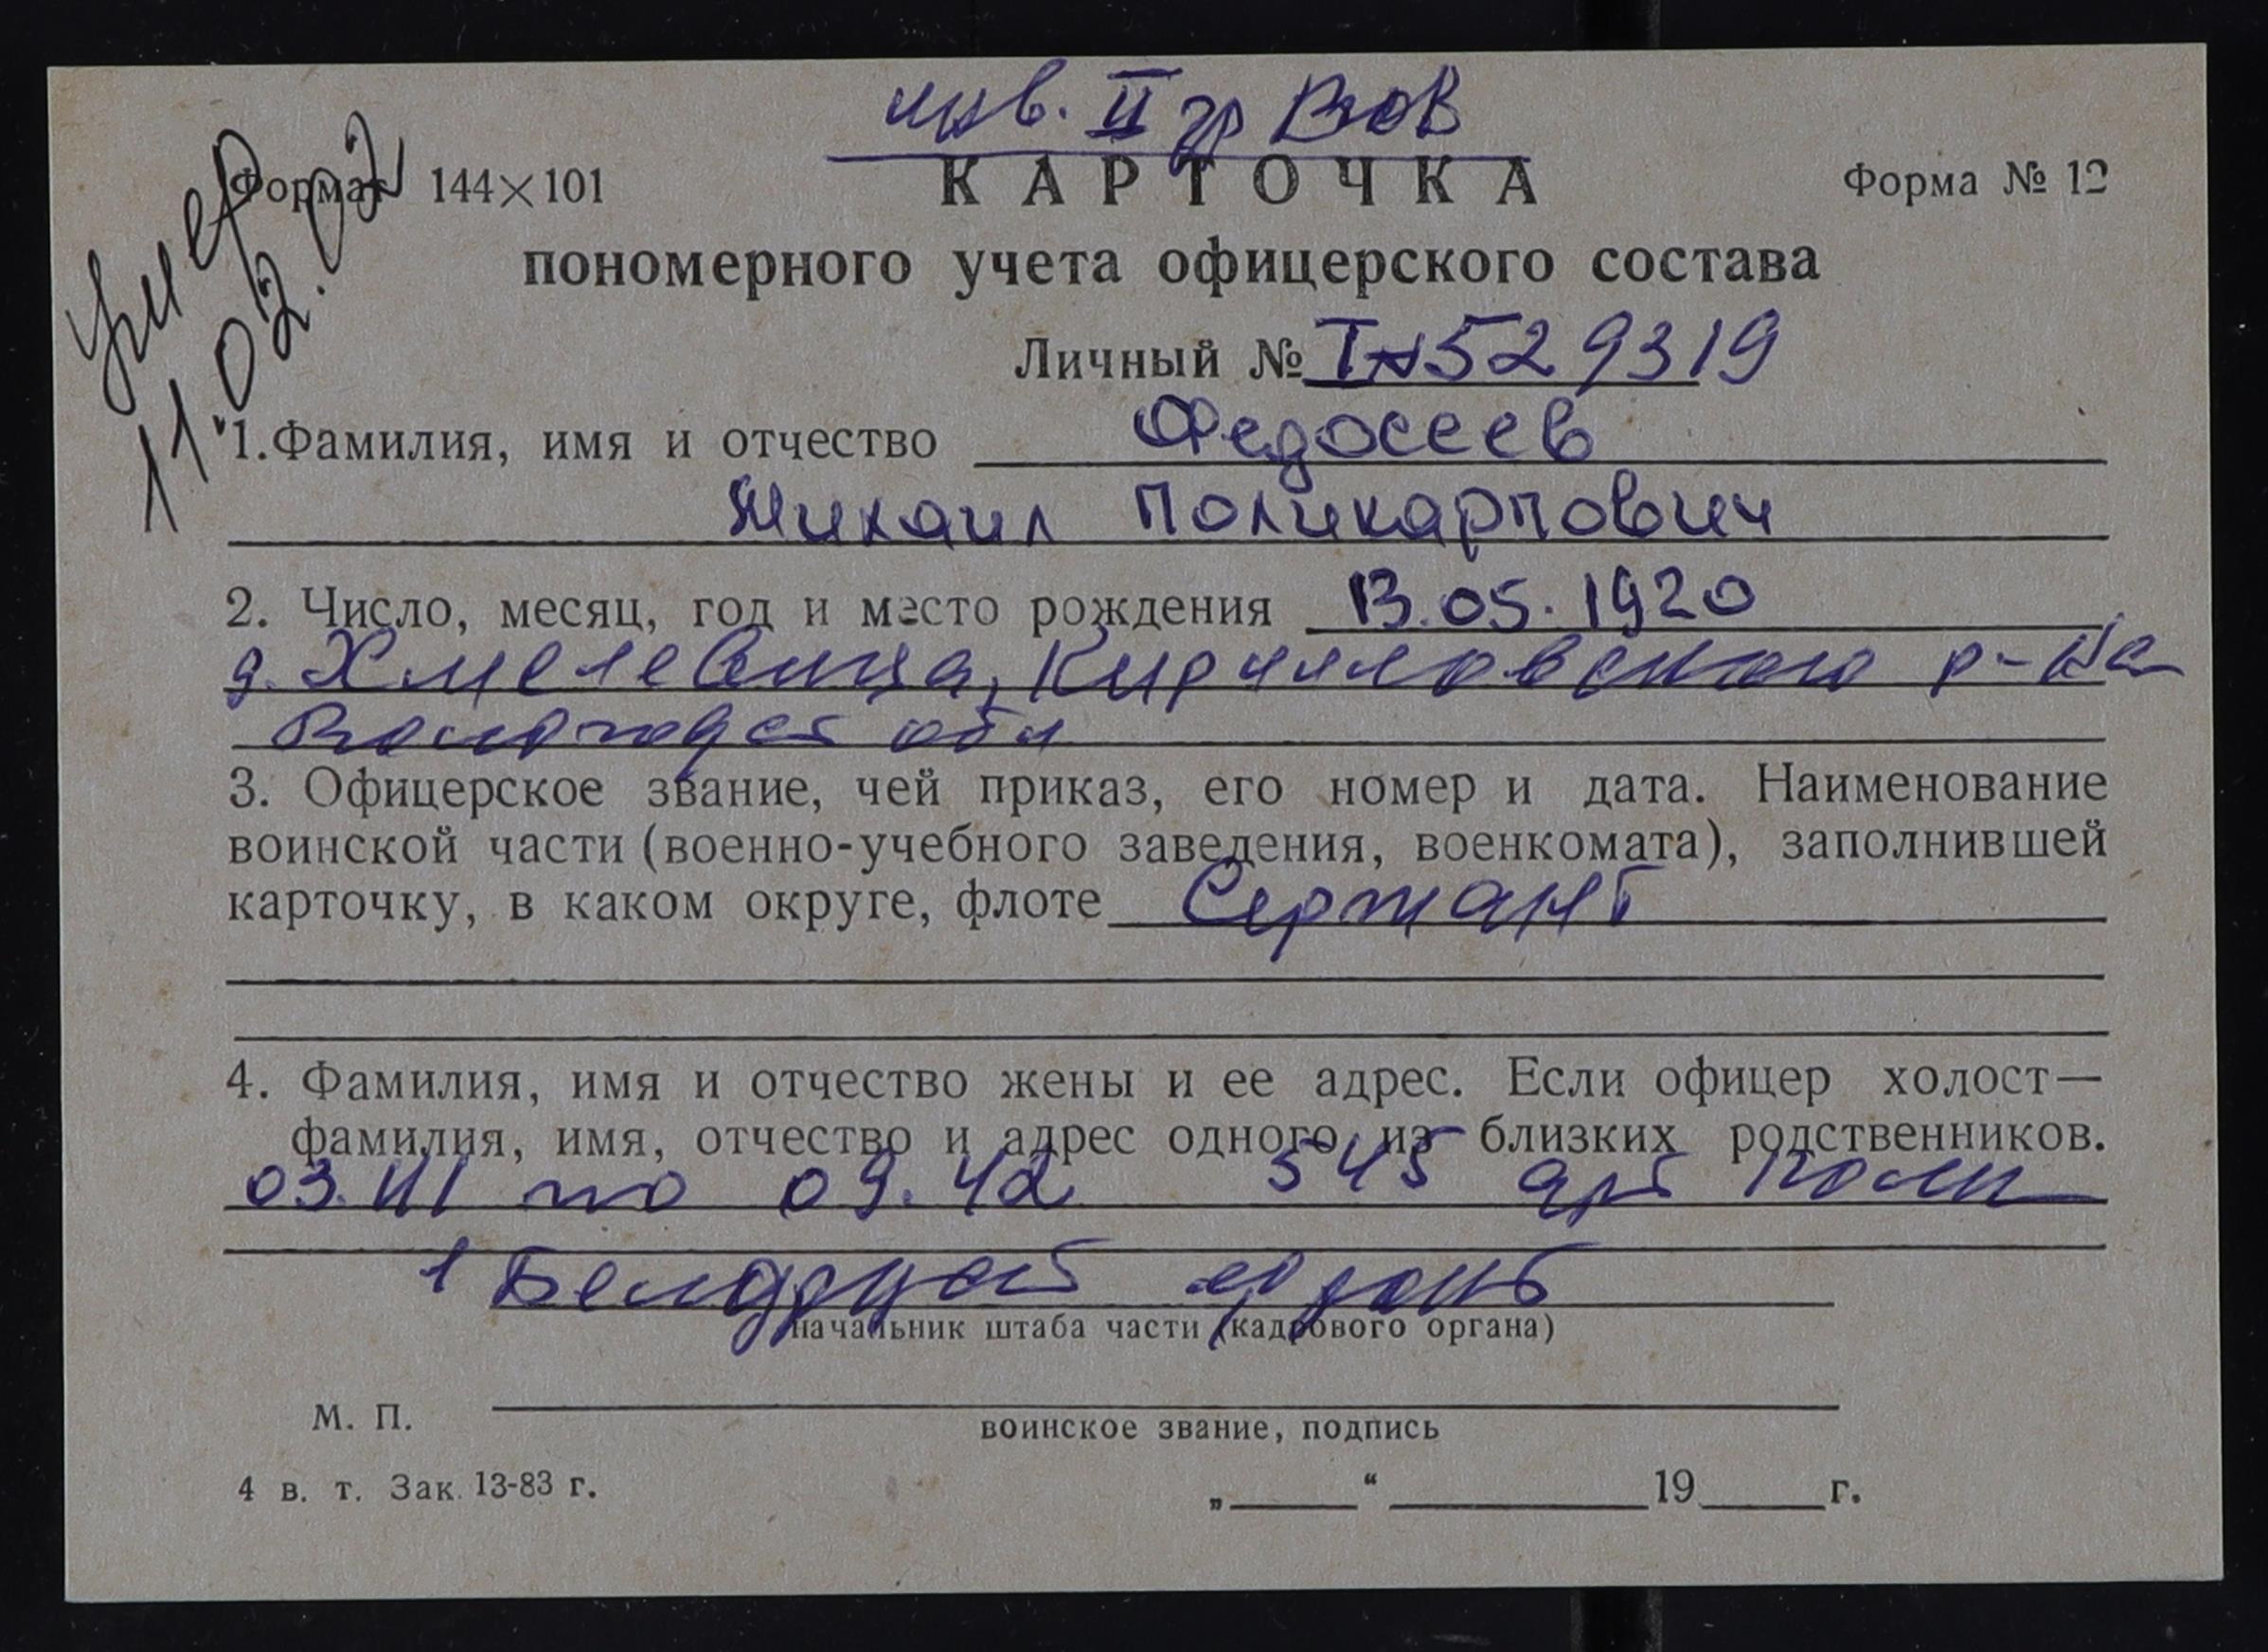 инв. II гр ВОВ
умер
11.02.02
Формат 144×101 КАРТОЧКА Форма № 12
пономерного учета офицерского состава
Личный № ТН 529319
1. Фамилия, имя и отчество Федосеев
Михаил Поликарпович
2. Число, месяц, год и место рождения 13.05.1920
д. Хмелевица, Кирилловского р-на
Вологодск обл
3. Офицерское звание, чей приказ, его номер и дата. Наименование
воинской части (военно-учебного заведения, военкомата), заполнившей
карточку, в каком округе, флоте Сержант
4. Фамилия, имя и отчество жены и ее адрес. Если офицер холост—
фамилия, имя, отчество и адрес одного из близких родственников.
03.41 по 09.42 545 арт полк
1
начальник штаба части (кадрового органа)
М. П.
воинское звание, подпись
4 в. т. Зак. 13-83 г. „ “ 19 г.